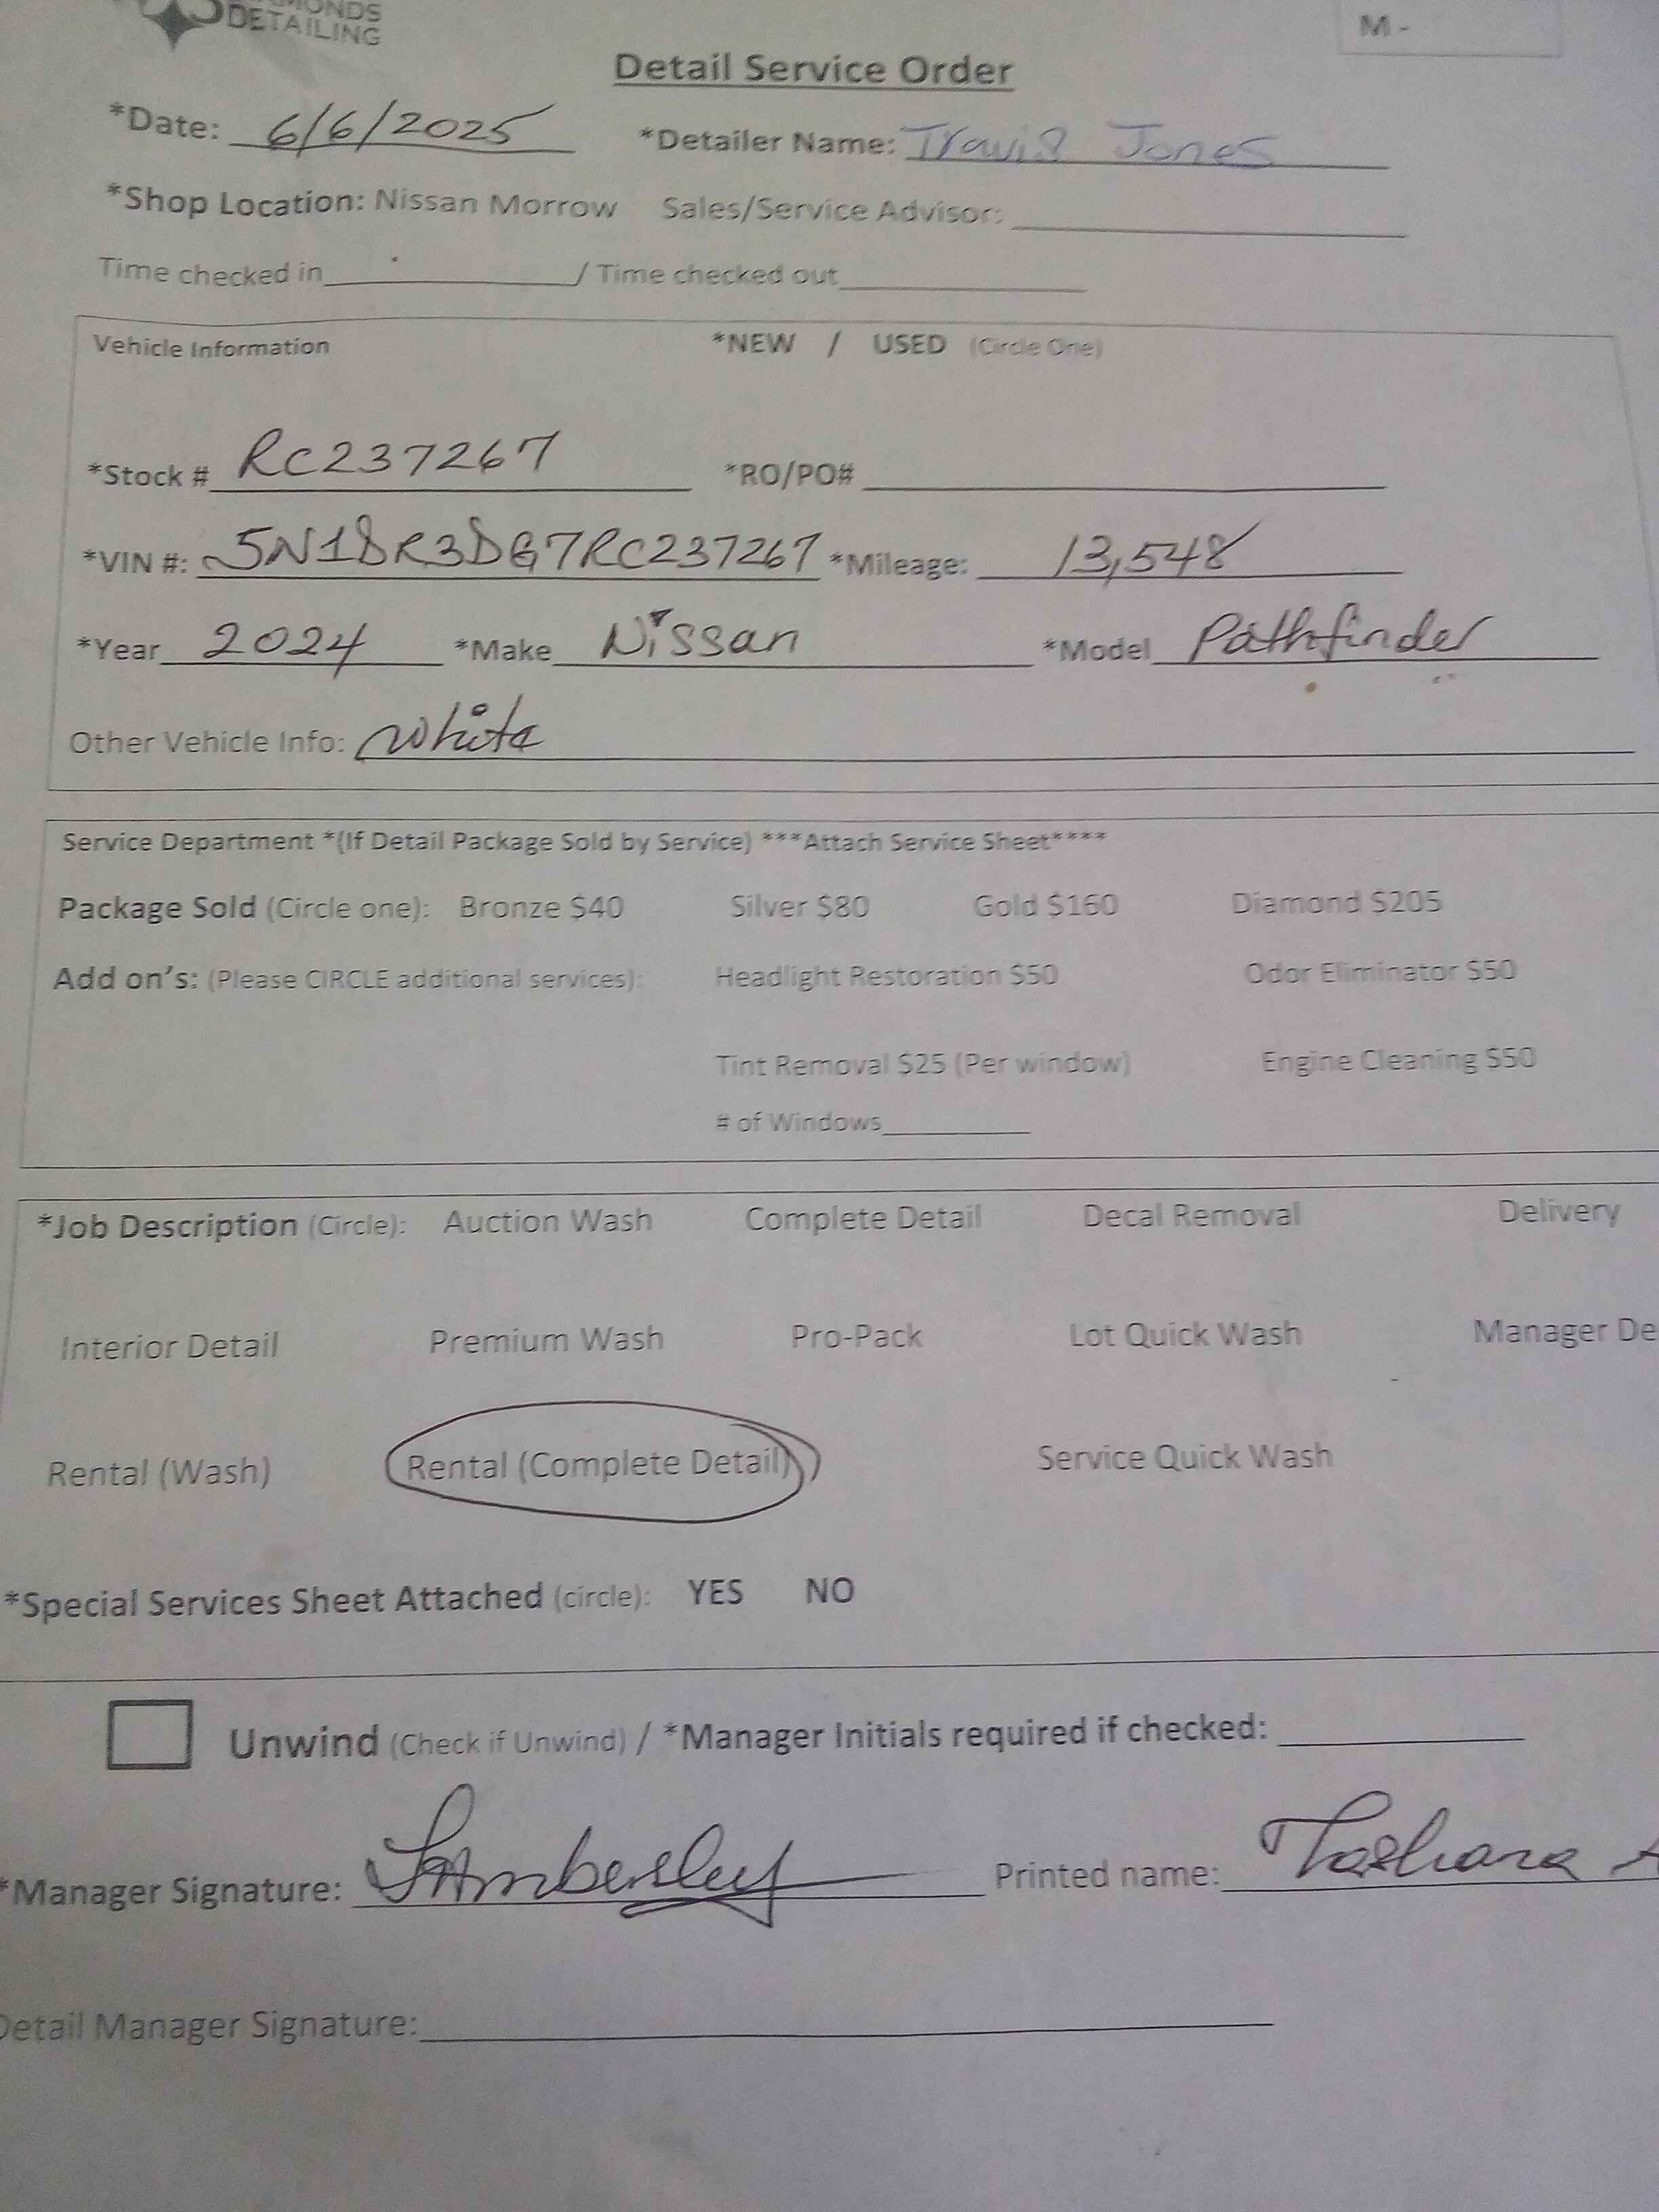 DETAILING
M -
Detail Service Order
*Date: 6/6/2025 *Detailer Name: Travis Jones
*Shop Location: Nissan Morrow Sales/Service Advisor:
Time checked in / Time checked out
Vehicle Information *NEW / USED (Circle One)
*Stock # RC237267 *RO/PO#
*VIN #: 5N1DR3DG7RC237267 *Mileage: 13,548
*Year 2024 *Make Nissan *Model Pathfinder
Other Vehicle Info: White
Service Department *(If Detail Package Sold by Service) ***Attach Service Sheet****
Package Sold (Circle one): Bronze $40 Silver $80 Gold $160 Diamond $205
Add on's: (Please CIRCLE additional services): Headlight Restoration $50 Odor Eliminator $50
Tint Removal $25 (Per window) Engine Cleaning $50
# of Windows
*Job Description (Circle): Auction Wash Complete Detail Decal Removal Delivery
Interior Detail Premium Wash Pro-Pack Lot Quick Wash Manager De
Rental (Wash) Rental (Complete Detail) Service Quick Wash
*Special Services Sheet Attached (circle): YES NO
Unwind (Check if Unwind) / *Manager Initials required if checked:
*Manager Signature: Printed name: Tashana
Detail Manager Signature: